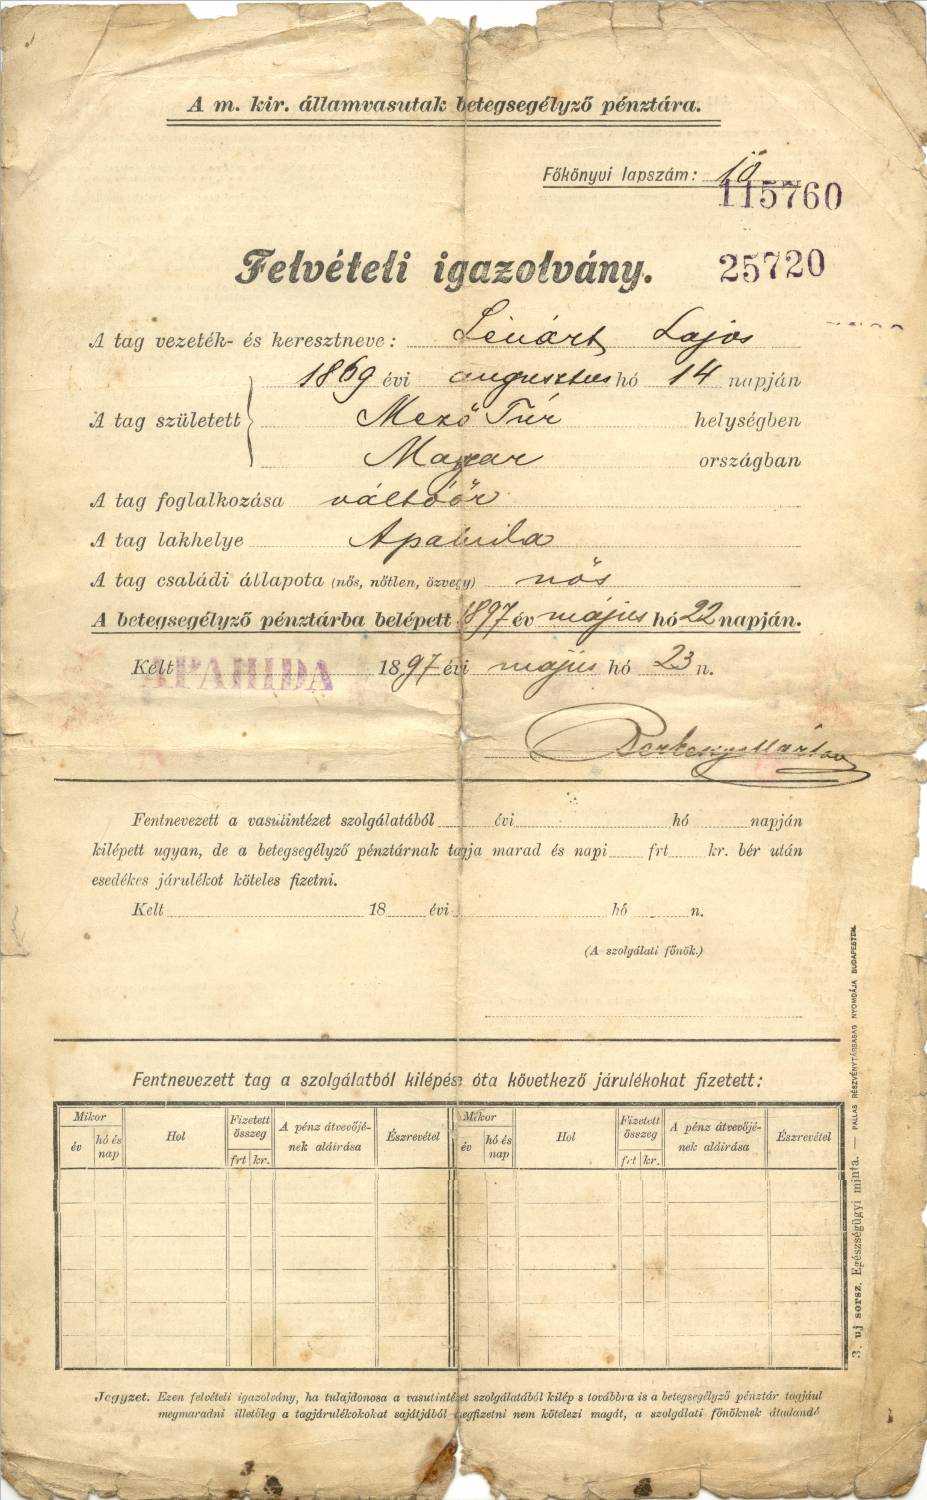 A m. kir. államvasutak betegsegélyző pénztára.
Főkönyvi lapszám:
115760
Felvételi igazolvány.
25720
A tag vezeték- és keresztneve: Lénárt Lajos
A tag született
1869 évi augusztus hó 14 napján
Mező Túr helységben
Magyar országban
A tag foglalkozása váltóőr
A tag lakhelye Apahida
A tag családi állapota (nős, nőtlen, özvegy) nős
A betegsegélyző pénztárba belépett 1897 év május hó 22 napján.
Kelt APAHIDA 1897 évi május hó 23 n.
Fentnevezett a vasutintézet szolgálatából évi hó napján
kilépett ugyan, de a betegsegélyző pénztárnak tagja marad és napi frt kr. bér után
esedékes járulékot köteles fizetni.
Kelt 18 évi hó n.
(A szolgálati főnök.)
Fentnevezett tag a szolgálatból kilépése óta következő járulékokat fizetett:
Mikor
év
hó és nap
Hol
Fizetett összeg
frt kr.
A pénz átvevőjének aláirása
Észrevétel
Mikor
év
hó és nap
Hol
Fizetett összeg
frt kr.
A pénz átvevőjének aláirása
Észrevétel
Jegyzet. Ezen felvételi igazolvány, ha tulajdonosa a vasutintézet szolgálatából kilép s továbbra is a betegsegélyző pénztár tagjául
megmaradni illetőleg a tagjárulékokokat sajátjából megfizetni nem kötelezi magát, a szolgálati főnöknek átadandó
3. uj sorsz. Egészségügyi minta. — PALLAS RÉSZVÉNYTÁRSASÁG NYOMDÁJA BUDAPESTEN.